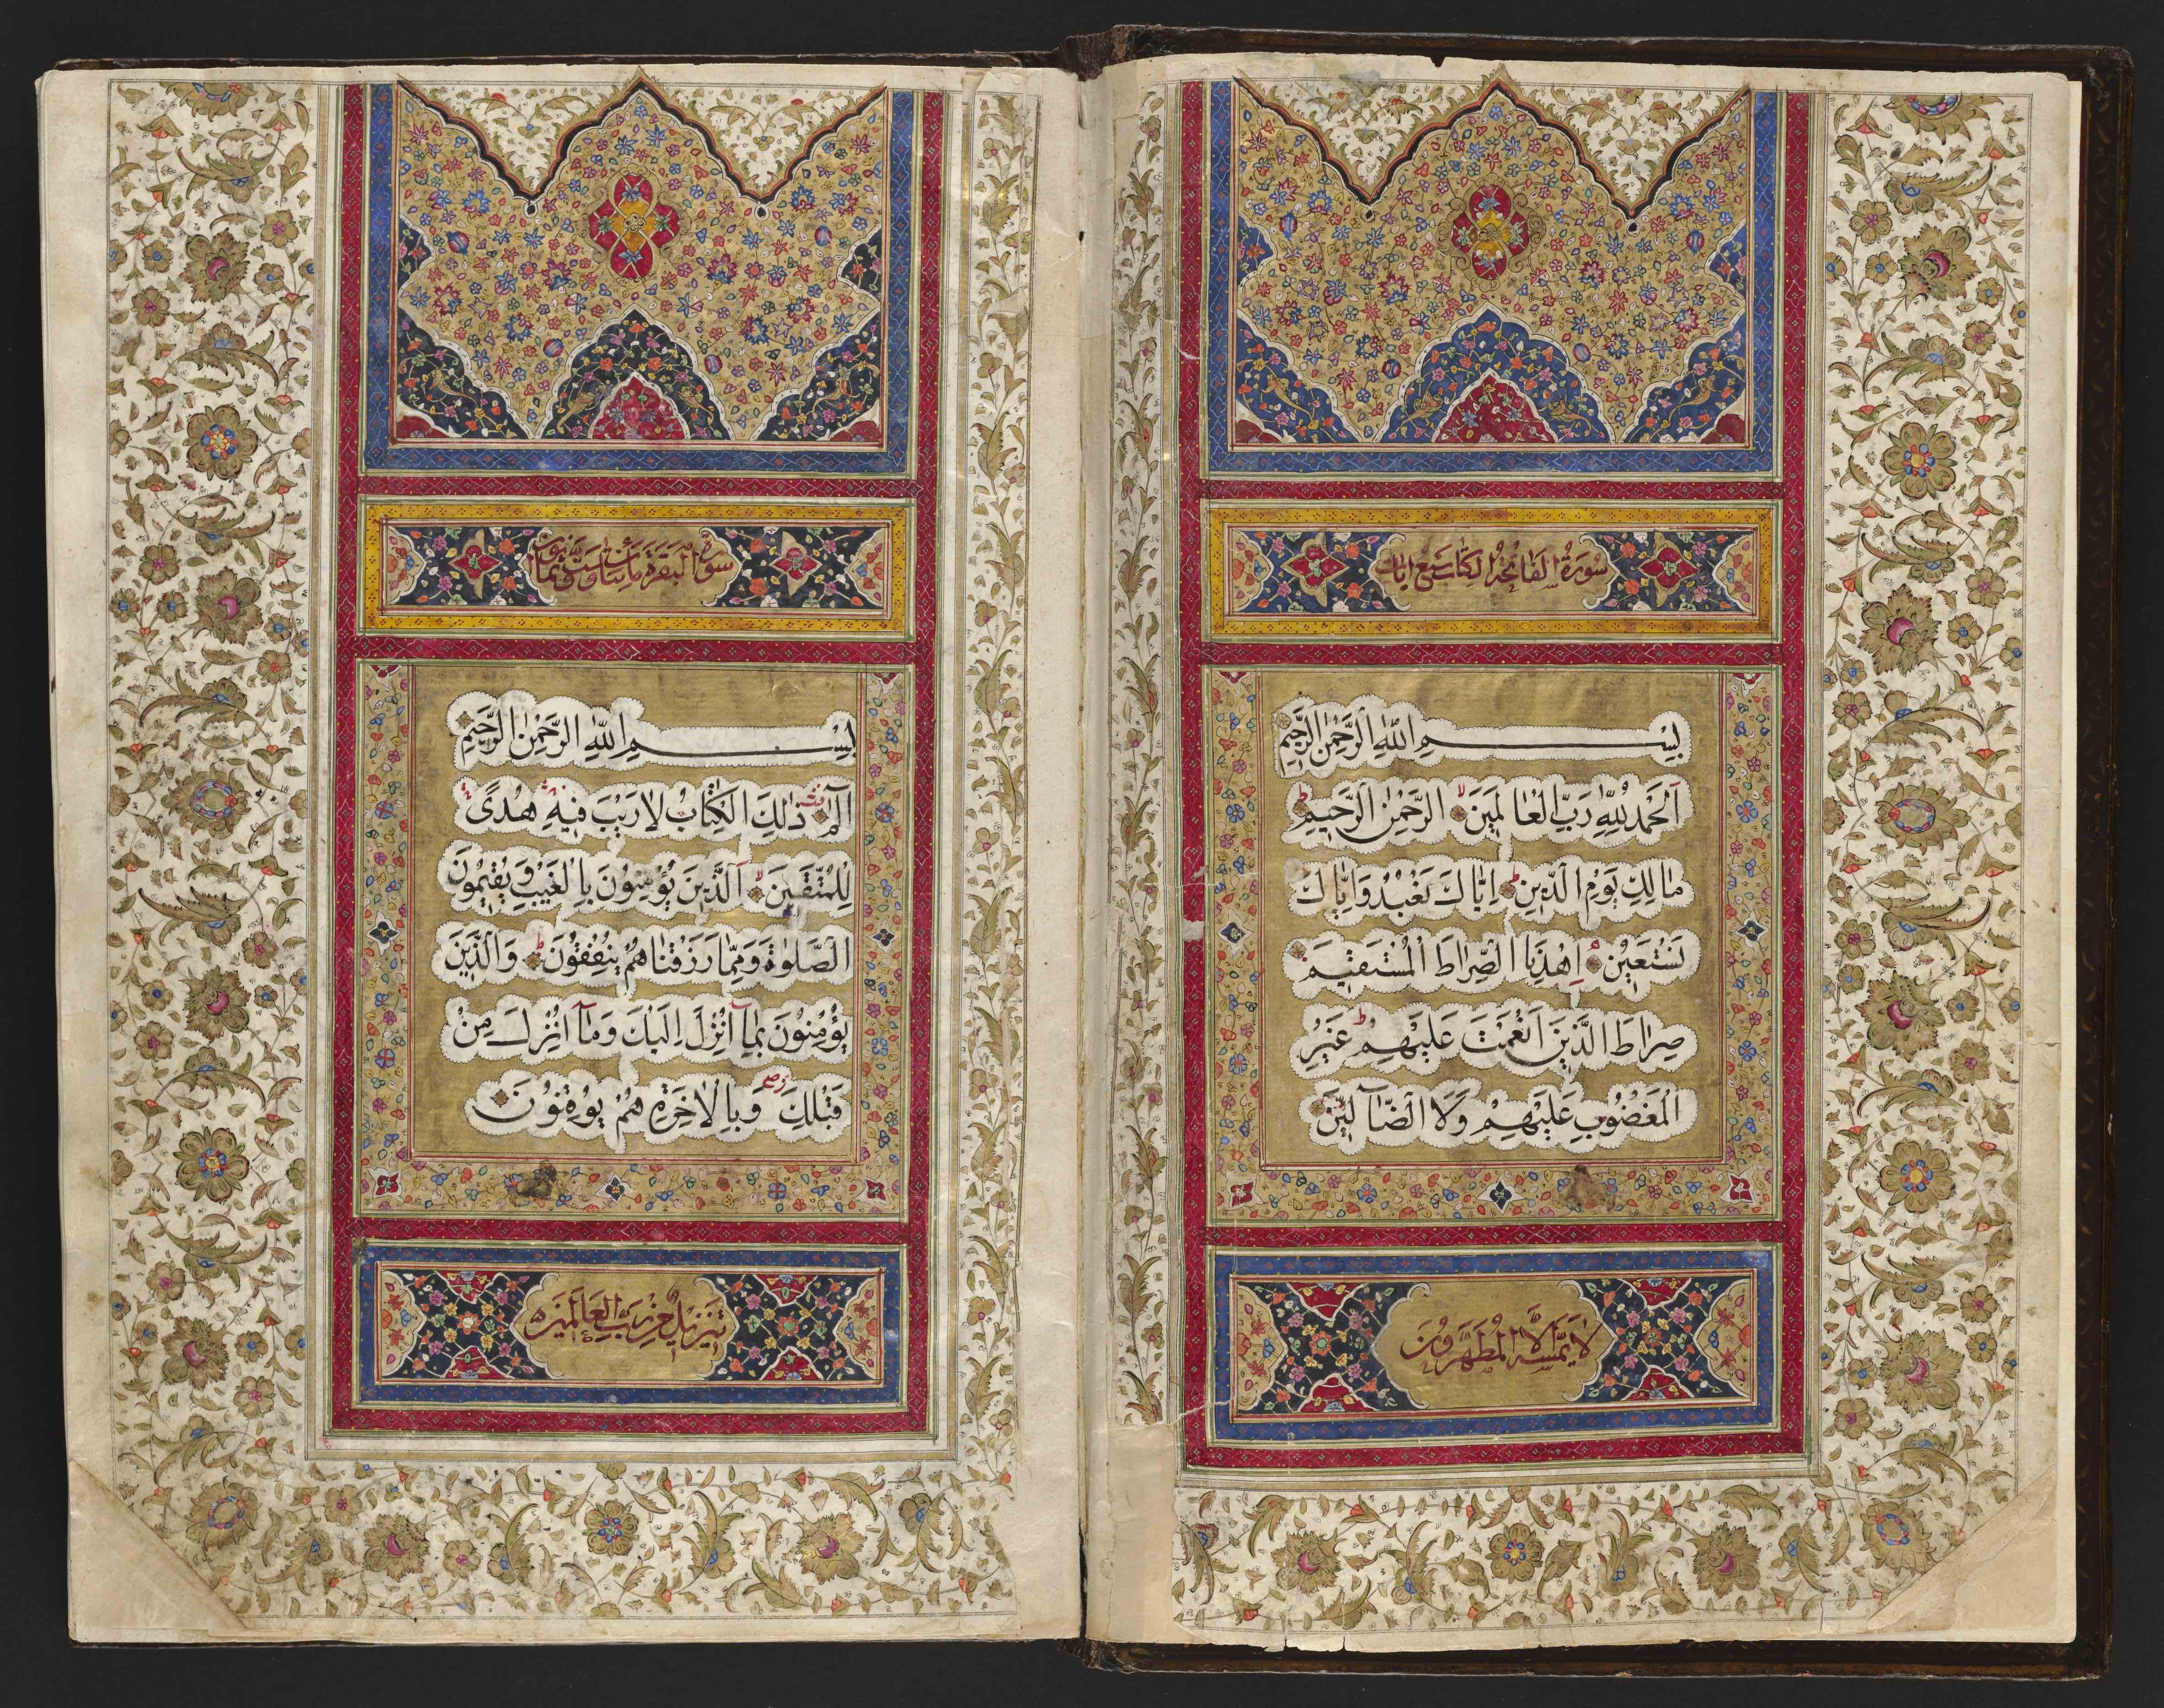 سورة الفاتحة الكتاب سبع ایات
بِسْمِ اللّٰهِ الرَّحْمٰنِ الرَّحِيمِ
اَلْحَمْدُ لِلّٰهِ رَبِّ الْعٰالَمِينَ الرَّحْمٰنِ الرَّحِيمِ
مٰالِكِ يَوْمِ الدِّينِ اِيّٰاكَ نَعْبُدُ وَاِيّٰاكَ
نَسْتَعِينُ اِهْدِنَا الصِّرٰاطَ الْمُسْتَقِيمَ
صِرٰاطَ الَّذِينَ اَنْعَمْتَ عَلَيْهِمْ غَيْرِ
الْمَغْضُوبِ عَلَيْهِمْ وَلَا الضَّآلِّينَ
لا يَمَسُّهُ اِلَّا الْمُطَهَّرُونَ
سورة البقرة مائتان وست وثمانون
بِسْمِ اللّٰهِ الرَّحْمٰنِ الرَّحِيمِ
الٓمٓ ذٰلِكَ الْكِتٰابُ لٰا رَيْبَ فِيهِ هُدًى
لِلْمُتَّقِينَ اَلَّذِينَ يُؤْمِنُونَ بِالْغَيْبِ وَيُقِيمُونَ
الصَّلٰوةَ وَمِمّٰا رَزَقْنٰاهُمْ يُنْفِقُونَ وَالَّذِينَ
يُؤْمِنُونَ بِمٰآ اُنْزِلَ اِلَيْكَ وَمٰآ اُنْزِلَ مِنْ
قَبْلِكَ وَبِالْاٰخِرَةِ هُمْ يُوقِنُونَ
تَنْزِيلٌ مِنْ رَبِّ الْعَالَمِينَ